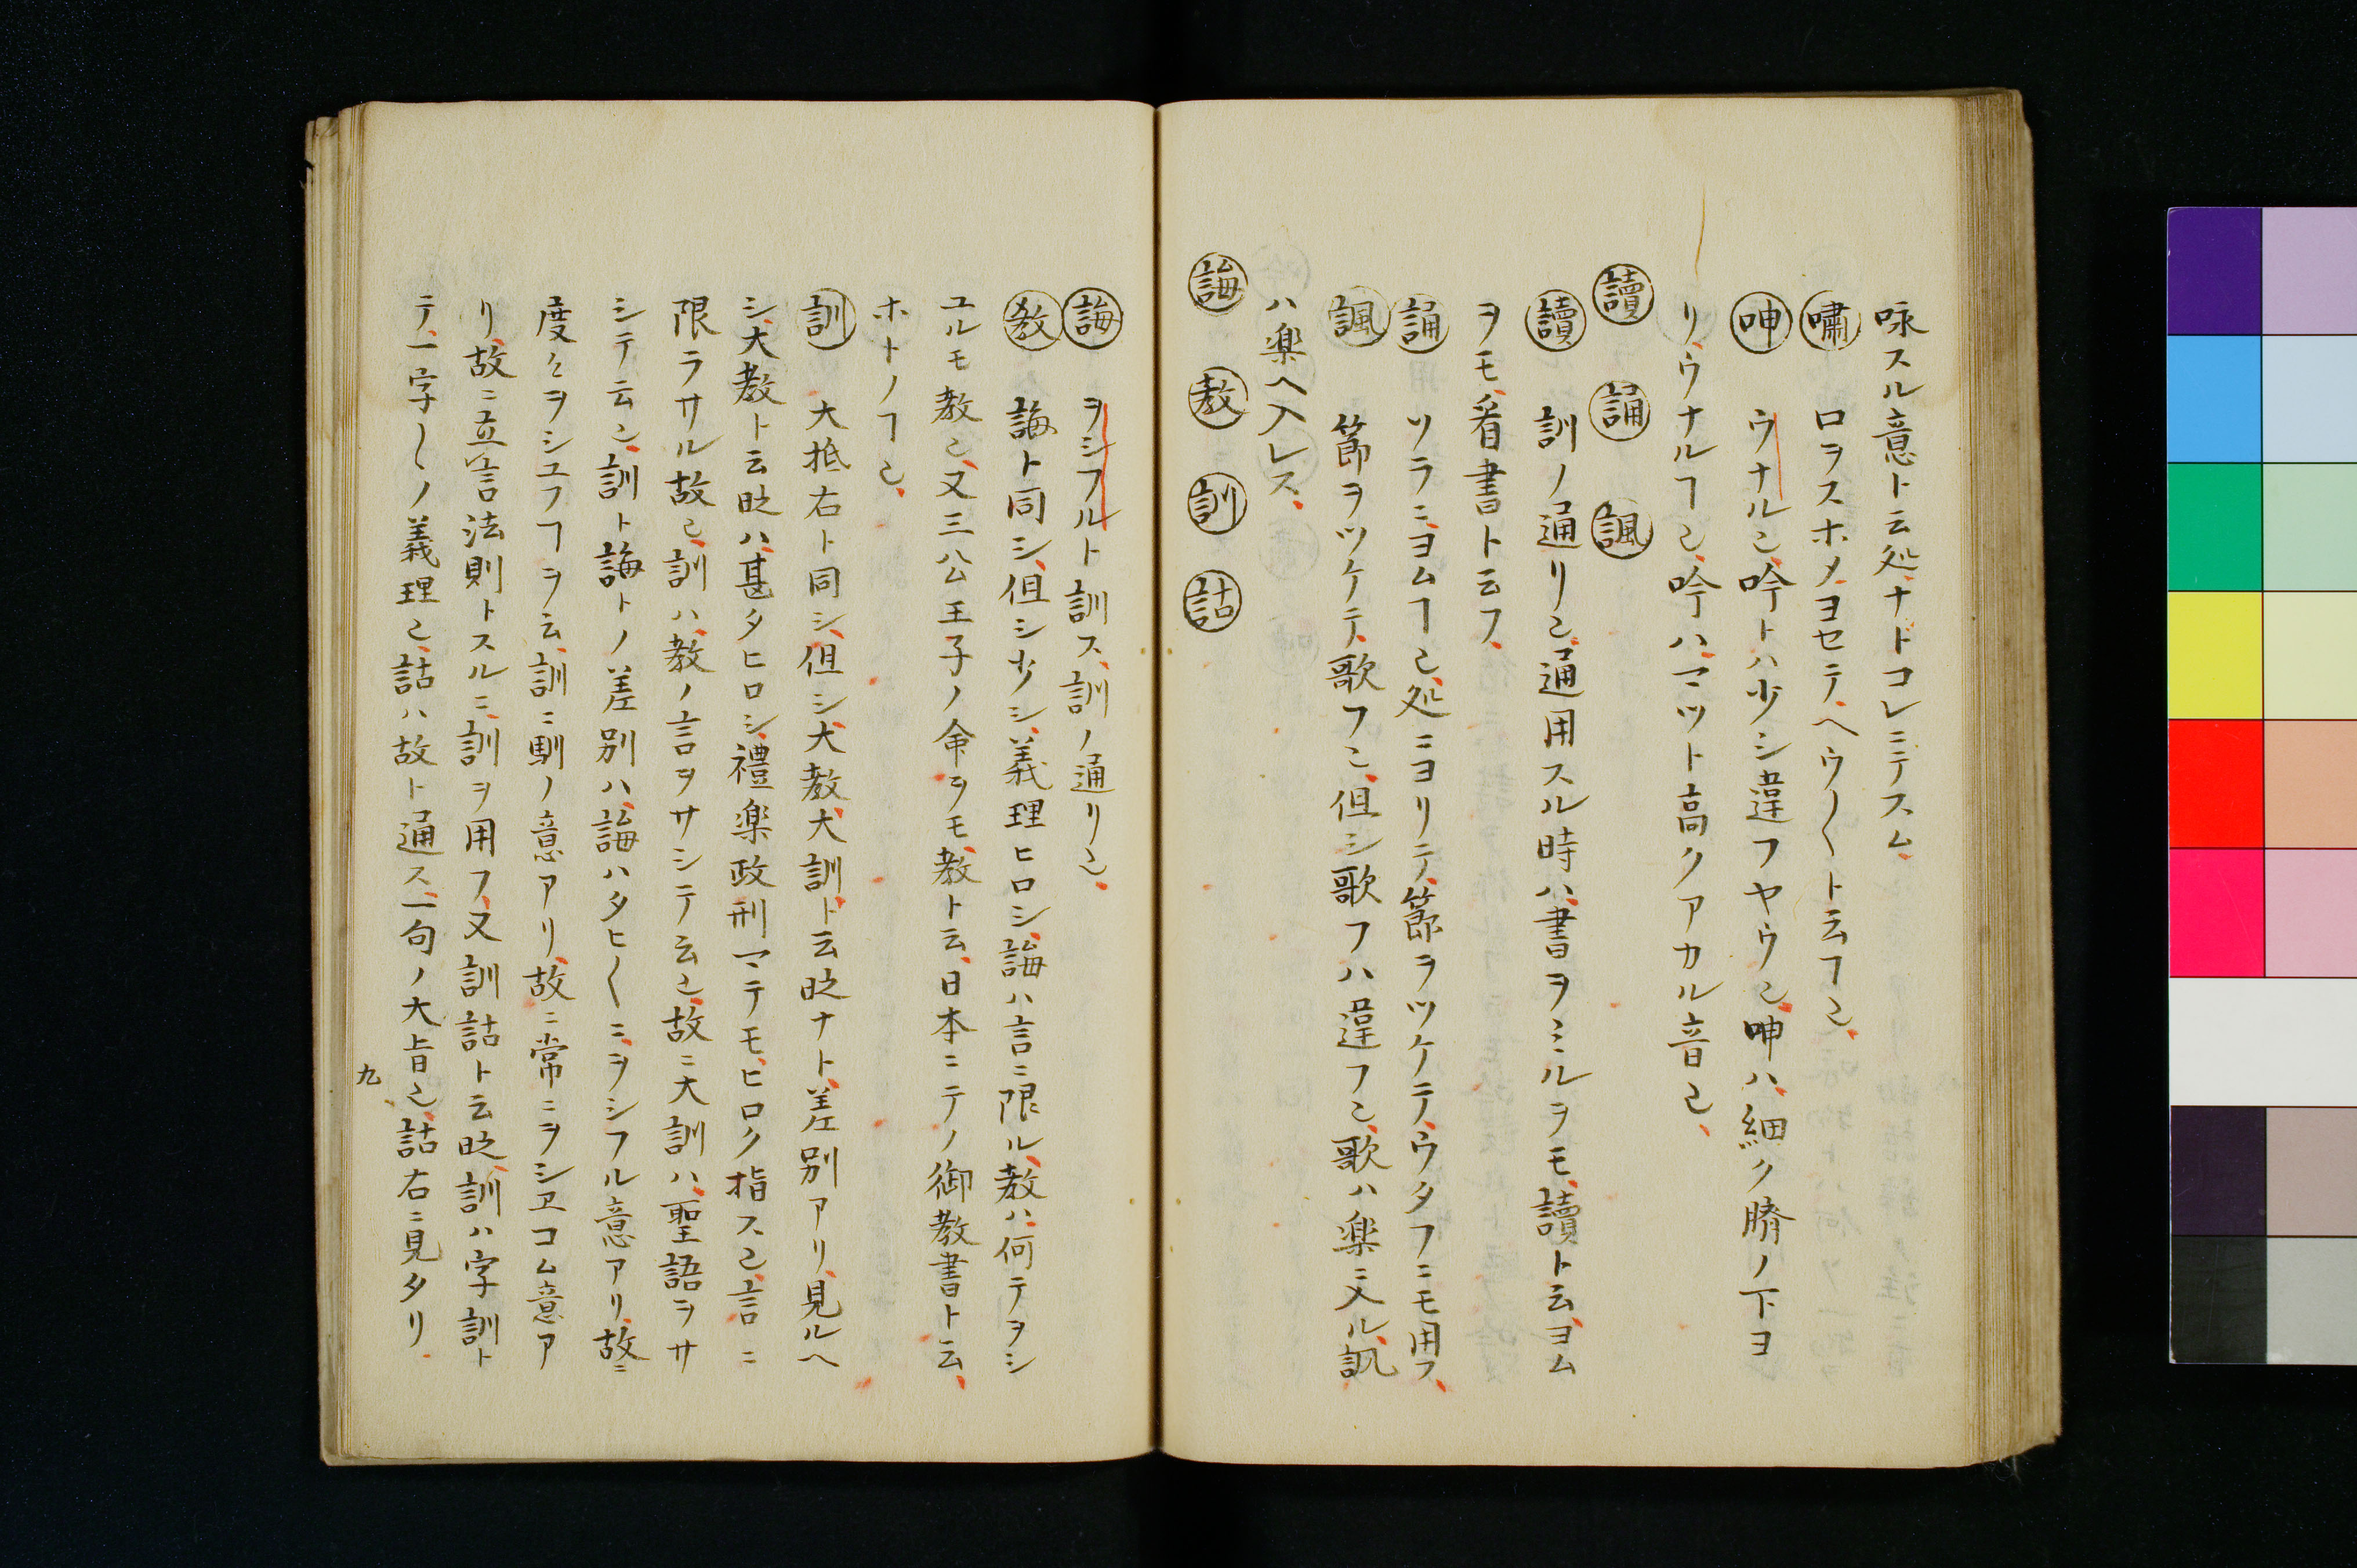 咏スル意ト云処ナドコレニテスム、
嘯 口ヲスホメヨセテ、ヘウ〱ト云フヿ也、
呻 ウナル也、吟トハ少シ違フヤウ也、呻ハ、細ク臍ノ下ヨ
リ、ウナルヿ也、吟ハ、マツト高クアカル音也、
讀 誦 諷
讀 訓ノ通リ也、通用スル時ハ、書ヲミルヲモ、讀ト云、ヨム
ヲモ、看書ト云フ、
誦 ソラニ、ヨムヿ也、処ニヨリテ、節ヲツケテ、ウタフニモ用フ、
諷 節ヲツケテ、歌フ也、但シ歌フハ違フ也、歌ハ楽ニ入ル、諷
ハ楽ヘ入レス、
誨 教 訓 詁
誨 ヲシフルト訓ス、訓ノ通リ也、
教 誨ト同シ、但シ少シ、義理ヒロシ、誨ハ言ニ限ル、教ハ、何テヲシ
ユルモ教也、又三公王子ノ命ヲモ、教ト云、日本ニテノ御教書ト云、
ホトノヿ也、
訓 大抵右ト同シ、但シ大教、大訓、ト云時ナト、差別アリ、見ルヘ
シ、大教ト云時ハ、甚タヒロシ、禮楽政刑マテモ、ヒロク指ス也、言ニ
限ラサル故也、訓ハ、教ノ言ヲサシテ云也、故ニ大訓ハ、聖語ヲサ
シテ云也、訓ト誨トノ差別ハ、誨ハタヒ〱ニ、ヲシフル意アリ、故ニ
度々ヲシユフヿヲ云、訓ニ馴ノ意アリ、故ニ常ニヲシヱコム意ア
リ、故ニ立言法則トスルニ、訓ヲ用フ、又訓詁ト云時、訓ハ字訓ト
テ、一字〱ノ義理也、詁ハ故ト通ス、一句ノ大旨也、詁右ニ見タリ、
九